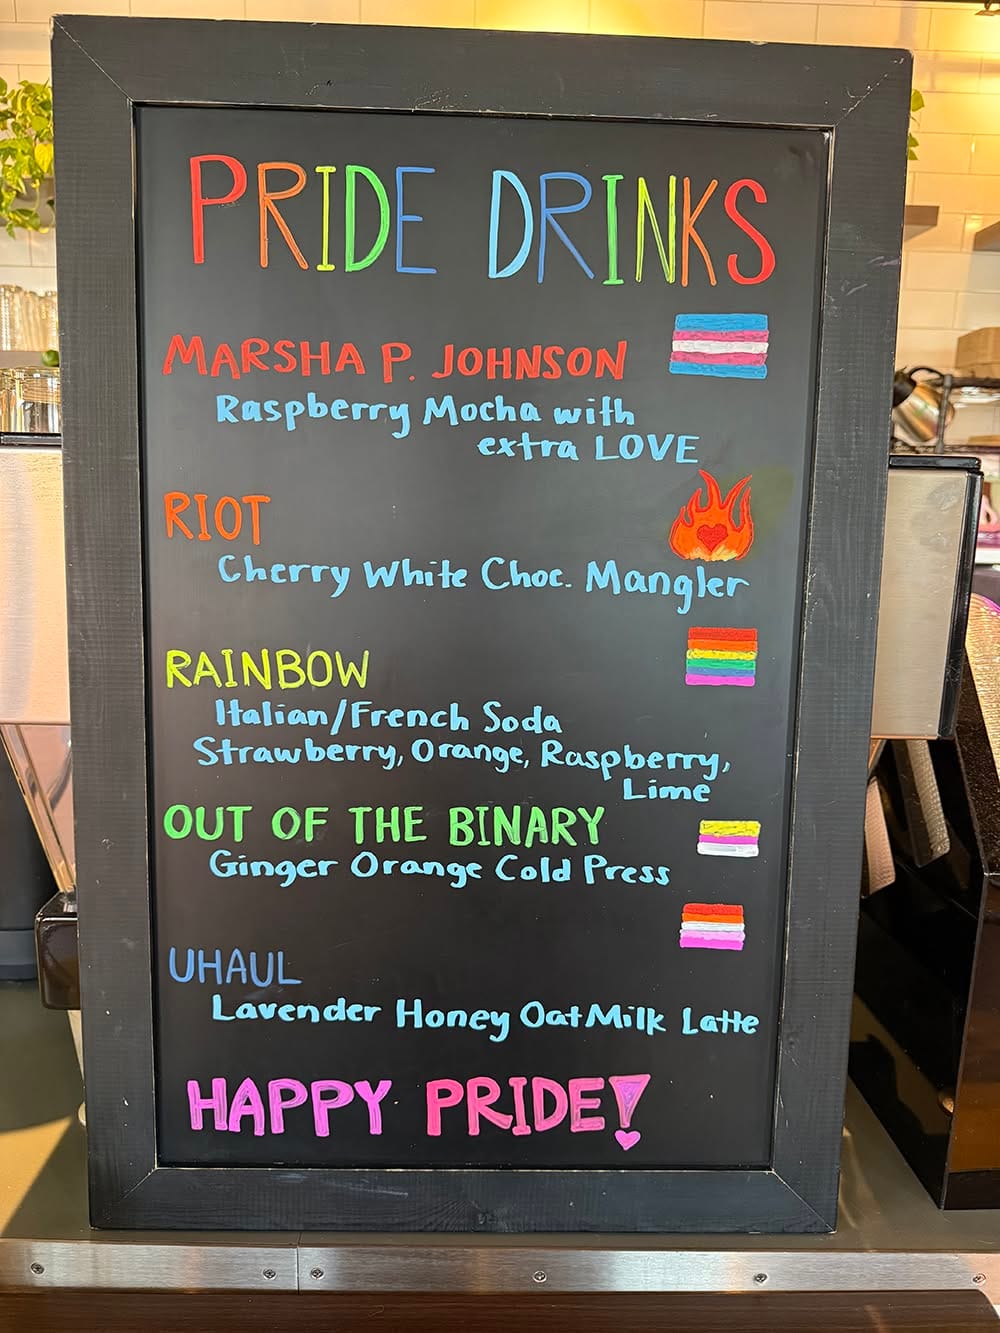 PRIDE DRINKS
MARSHA P. JOHNSON
Raspberry Mocha with
extra LOVE
RIOT
Cherry White Choc. Mangler
RAINBOW
Italian/French Soda
Strawberry, Orange, Raspberry,
Lime
OUT OF THE BINARY
Ginger Orange Cold Press
UHAUL
Lavender Honey OatMilk Latte
HAPPY PRIDE!